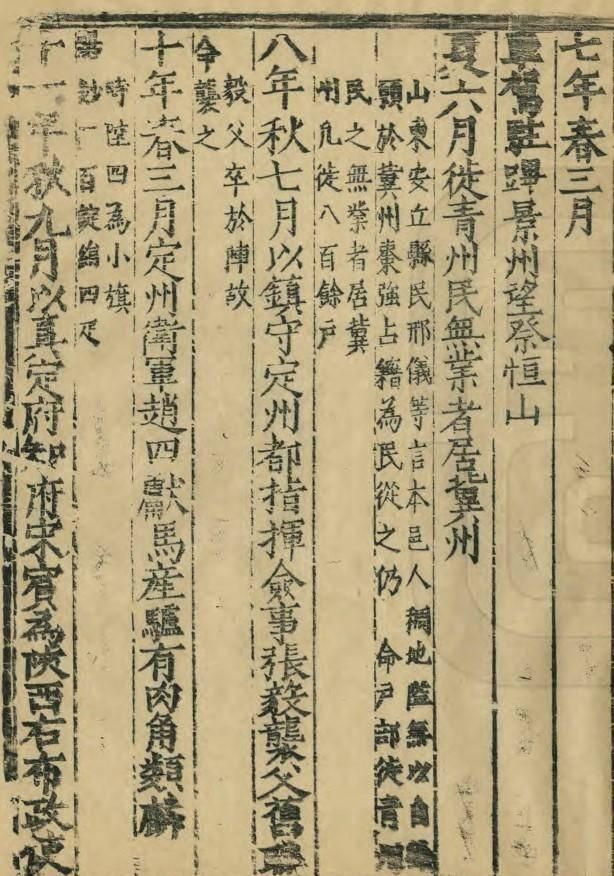 七年春三月
車駕駐蹕景州望祭恒山
夏六月徙青州民無業者居冀州
山東安丘縣民邢儀等言本邑人稠地隘無以自
頭於冀州棗強占籍為民從之仍 命戶部徙青
民之無業者居冀
州凡徙八百餘戶
八年秋七月以鎮守定州都指揮僉事張毅襲父舊職
毅父卒於陣故
今襲之
十年春三月定州衛軍趙四獻馬産驢有肉角類麟
時陞四為小旗
賜鈔一百錠絹四疋
十一年秋九月以真定府知府宋賓為陝西右布政使